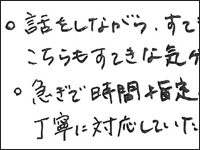 ○話をしながら、すて
こちらもすてきな気
○急ぎで時間指定
丁寧に対応していた